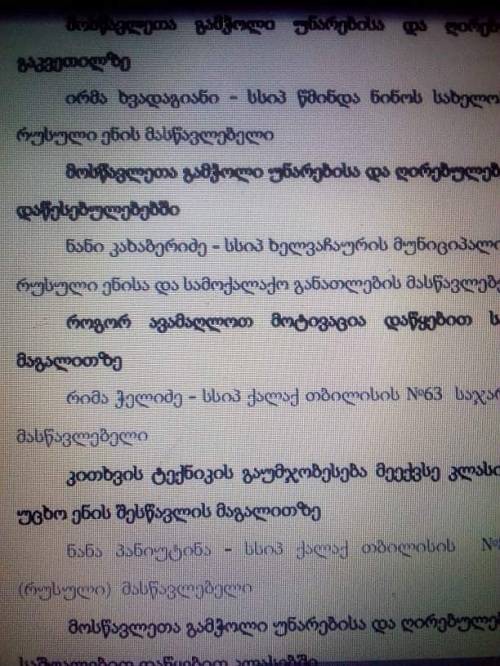 მოსწავლეთა გამჭოლი უნარებისა და
გაკვეთილზე
ირმა ხვადაგიანი – სსიპ წმინდა ნინოს
რუსული ენის მასწავლებელი
მოსწავლეთა გამჭოლი უნარებისა და
დაწესებულებებში
ნანი კახაბერიძე – სსიპ ხელვაჩაურის
რუსული ენისა და სამოქალაქო განათლების
როგორ ავამაღლოთ მოტივაცია დაწყებით
მაგალითზე
რიმა ჭელიძე – სსიპ ქალაქ თბილისის №63
მასწავლებელი
კითხვის ტექნიკის გაუმჯობესება მეექვსე
უცხო ენის შესწავლის მაგალითზე
ნანა პანიუტინა – სსიპ ქალაქ თბილისის
(რუსული) მასწავლებელი
მოსწავლეთა გამჭოლი უნარებისა და